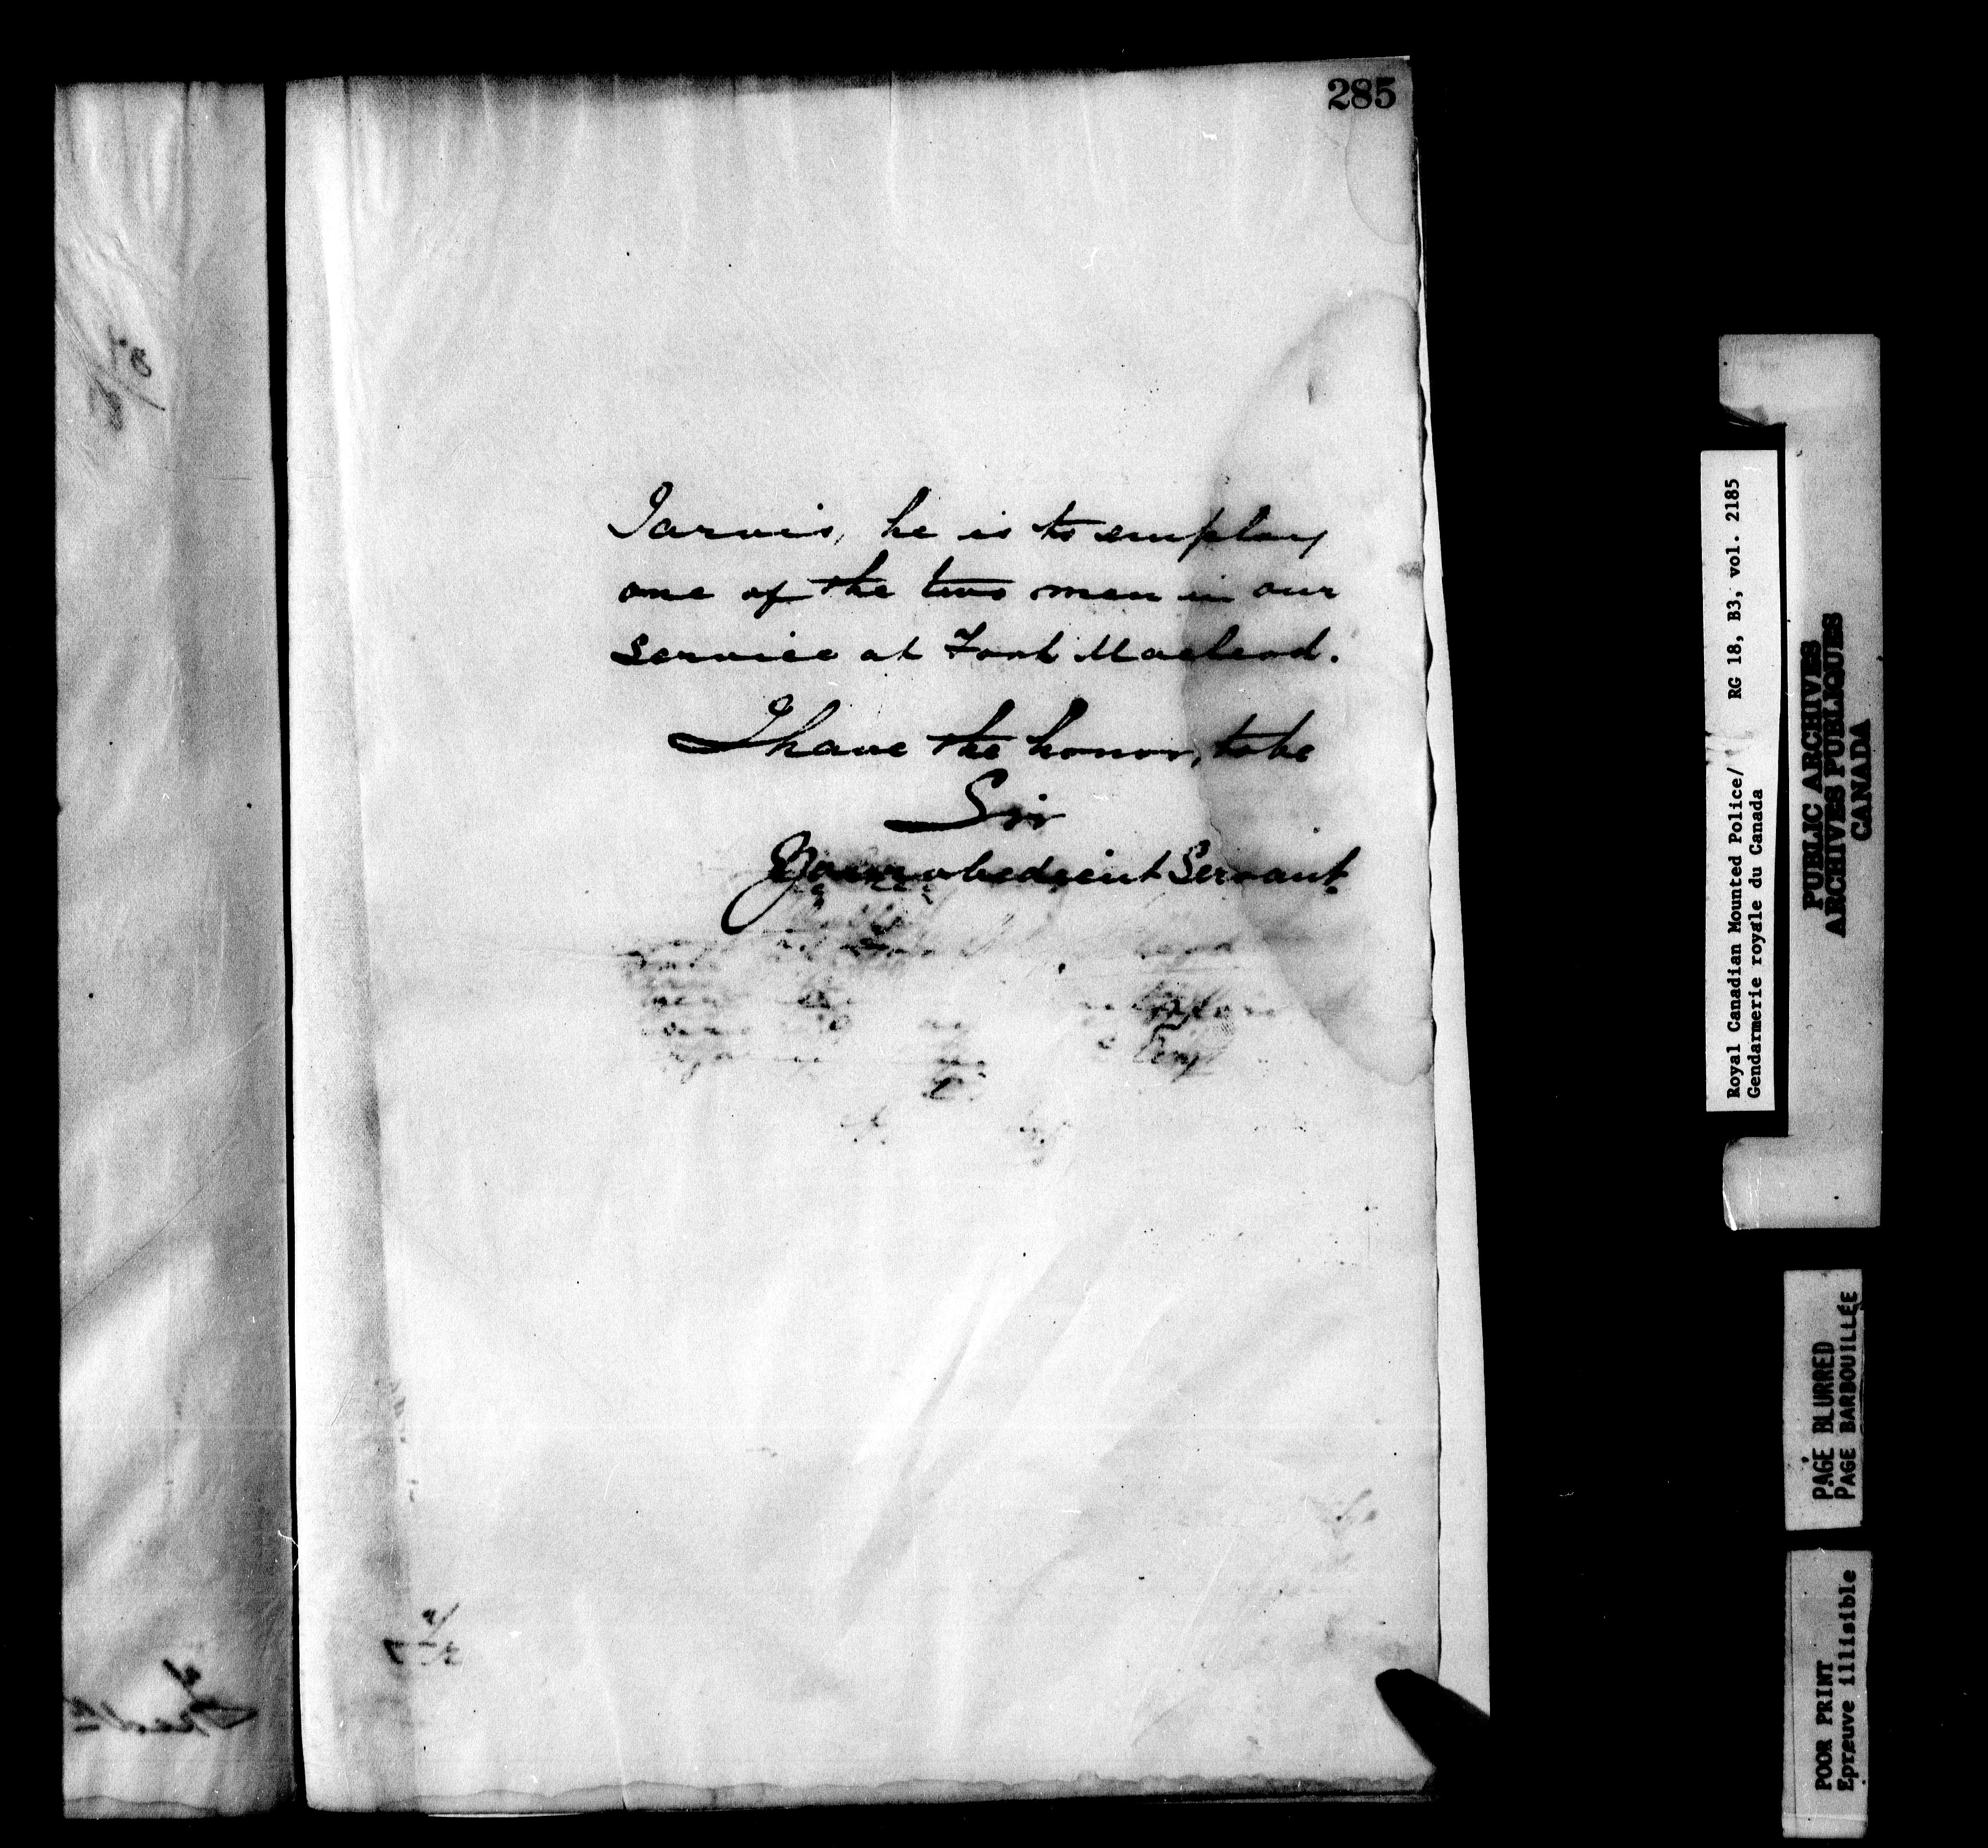 285
Jarvis, he is to employ
one of the two men in our
service at Fort Macleod.
I have the honor, to be
Sir
Your obedient Servant
Royal Canadian Mounted Police/ RG 18, B3, vol. 2185
Gendarmerie royale du Canada
PUBLIC ARCHIVES
ARCHIVES PUBLIQUES
CANADA
PAGE BLURRED
PAGE BARBOUILLÉE
POOR PRINT
Epreuve illisible